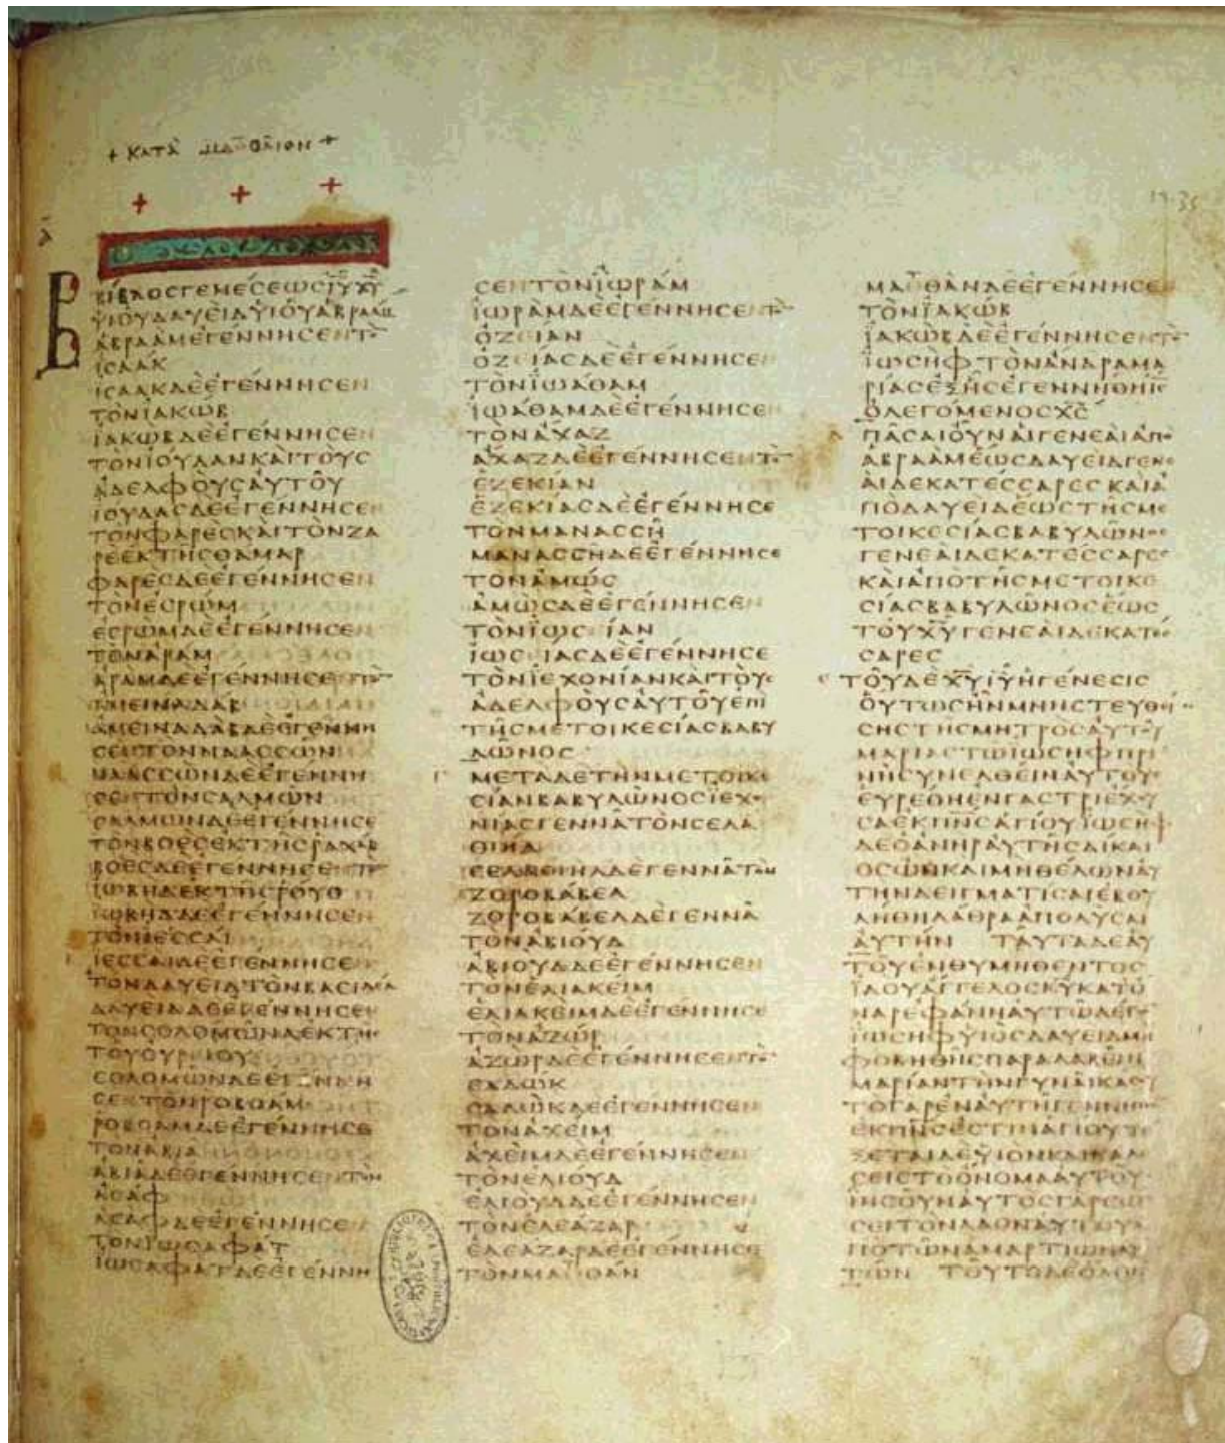 + ΚΑΤΑ ΜΑΘΘΑΙΟΝ +
ΒΙΒΛΟΣΓΕΝΕΣΕΩΣΙΥΧΥ
ΥΙΟΥΔΑΥΕΙΔΥΙΟΥΑΒΡΑΑΜ
ΑΒΡΑΑΜΕΓΕΝΝΗΣΕΝΤΟ
ΙΣΑΑΚ
ΙΣΑΑΚΔΕΕΓΕΝΝΗΣΕΝ
ΤΟΝΙΑΚΩΒ
ΙΑΚΩΒΔΕΕΓΕΝΝΗΣΕΝ
ΤΟΝΙΟΥΔΑΝΚΑΙΤΟΥΣ
ΑΔΕΛΦΟΥΣΑΥΤΟΥ
ΙΟΥΔΑΣΔΕΕΓΕΝΝΗΣΕΝ
ΤΟΝΦΑΡΕΣΚΑΙΤΟΝΖΑ
ΡΕΕΚΤΗΣΘΑΜΑΡ
ΦΑΡΕΣΔΕΕΓΕΝΝΗΣΕΝ
ΤΟΝΕΣΡΩΜ
ΕΣΡΩΜΔΕΕΓΕΝΝΗΣΕΝ
ΤΟΝΑΡΑΜ
ΑΡΑΜΔΕΕΓΕΝΝΗΣΕΝΤΟ
ΑΜΕΙΝΑΔΑΒ
ΑΜΕΙΝΑΔΑΒΔΕΕΓΕΝΝΗ
ΣΕΝΤΟΝΝΑΑΣΣΩΝ
ΝΑΑΣΣΩΝΔΕΕΓΕΝΝΗ
ΣΕΝΤΟΝΣΑΛΜΩΝ
ΣΑΛΜΩΝΔΕΕΓΕΝΝΗΣΕ
ΤΟΝΒΟΕΣΕΚΤΗΣΡΑΧΑΒ
ΒΟΕΣΔΕΕΓΕΝΝΗΣΕΝΤΟ
ΙΩΒΗΔΕΚΤΗΣΡΟΥΘ
ΙΩΒΗΔΔΕΕΓΕΝΝΗΣΕΝ
ΤΟΝΙΕΣΣΑΙ
ΙΕΣΣΑΙΔΕΕΓΕΝΝΗΣΕΝ
ΤΟΝΔΑΥΕΙΔΤΟΝΒΑΣΙΛΕΑ
ΔΑΥΕΙΔΔΕΕΓΕΝΝΗΣΕΝ
ΤΟΝΣΟΛΟΜΩΝΑΕΚΤΗΣ
ΤΟΥΟΥΡΕΙΟΥ
ΣΟΛΟΜΩΝΔΕΕΓΕΝΝΗ
ΣΕΝΤΟΝΡΟΒΟΑΜ
ΡΟΒΟΑΜΔΕΕΓΕΝΝΗΣΕ
ΤΟΝΑΒΙΑ
ΑΒΙΑΔΕΕΓΕΝΝΗΣΕΝΤΟΝ
ΑΣΑΦ
ΑΣΑΦΔΕΕΓΕΝΝΗΣΕΝ
ΤΟΝΙΩΣΑΦΑΤ
ΙΩΣΑΦΑΤΔΕΕΓΕΝΝΗ
ΣΕΝΤΟΝΙΩΡΑΜ
ΙΩΡΑΜΔΕΕΓΕΝΝΗΣΕΝΤΟ
ΟΖΕΙΑΝ
ΟΖΕΙΑΣΔΕΕΓΕΝΝΗΣΕΝ
ΤΟΝΙΩΑΘΑΜ
ΙΩΑΘΑΜΔΕΕΓΕΝΝΗΣΕΝ
ΤΟΝΑΧΑΖ
ΑΧΑΖΔΕΕΓΕΝΝΗΣΕΝΤΟ
ΕΖΕΚΙΑΝ
ΕΖΕΚΙΑΣΔΕΕΓΕΝΝΗΣΕ
ΤΟΝΜΑΝΑΣΣΗ
ΜΑΝΑΣΣΗΔΕΕΓΕΝΝΗΣΕ
ΤΟΝΑΜΩΣ
ΑΜΩΣΔΕΕΓΕΝΝΗΣΕΝ
ΤΟΝΙΩΣΕΙΑΝ
ΙΩΣΕΙΑΣΔΕΕΓΕΝΝΗΣΕ
ΤΟΝΙΕΧΟΝΙΑΝΚΑΙΤΟΥΣ
ΑΔΕΛΦΟΥΣΑΥΤΟΥΕΠΙ
ΤΗΣΜΕΤΟΙΚΕΣΙΑΣΒΑΒΥ
ΛΩΝΟΣ
ΜΕΤΑΔΕΤΗΝΜΕΤΟΙΚΕ
ΣΙΑΝΒΑΒΥΛΩΝΟΣΙΕΧΟ
ΝΙΑΣΓΕΝΝΑΤΟΝΣΕΛΑ
ΘΙΗΛ
ΣΕΛΑΘΙΗΛΔΕΓΕΝΝΑΤΟΝ
ΖΟΡΟΒΑΒΕΛ
ΖΟΡΟΒΑΒΕΛΔΕΓΕΝΝΑ
ΤΟΝΑΒΙΟΥΔ
ΑΒΙΟΥΔΔΕΕΓΕΝΝΗΣΕΝ
ΤΟΝΕΛΙΑΚΕΙΜ
ΕΛΙΑΚΕΙΜΔΕΕΓΕΝΝΗΣΕ
ΤΟΝΑΖΩΡ
ΑΖΩΡΔΕΕΓΕΝΝΗΣΕΝΤΟ
ΣΑΔΩΚ
ΣΑΔΩΚΔΕΕΓΕΝΝΗΣΕΝ
ΤΟΝΑΧΕΙΜ
ΑΧΕΙΜΔΕΕΓΕΝΝΗΣΕΝ
ΤΟΝΕΛΙΟΥΔ
ΕΛΙΟΥΔΔΕΕΓΕΝΝΗΣΕΝ
ΤΟΝΕΛΕΑΖΑΡ
ΕΛΕΑΖΑΡΔΕΕΓΕΝΝΗΣΕ
ΤΟΝΜΑΘΘΑΝ
ΜΑΘΘΑΝΔΕΕΓΕΝΝΗΣΕΝ
ΤΟΝΙΑΚΩΒ
ΙΑΚΩΒΔΕΕΓΕΝΝΗΣΕΝΤΟ
ΙΩΣΗΦΤΟΝΑΝΔΡΑΜΑ
ΡΙΑΣΕΞΗΣΕΓΕΝΝΗΘΗΙΣ
ΟΛΕΓΟΜΕΝΟΣΧΣ
ΠΑΣΑΙΟΥΝΑΙΓΕΝΕΑΙΑΠΟ
ΑΒΡΑΑΜΕΩΣΔΑΥΕΙΔΓΕΝΕ
ΑΙΔΕΚΑΤΕΣΣΑΡΕΣΚΑΙΑ
ΠΟΔΑΥΕΙΔΕΩΣΤΗΣΜΕ
ΤΟΙΚΕΣΙΑΣΒΑΒΥΛΩΝΟΣ
ΓΕΝΕΑΙΔΕΚΑΤΕΣΣΑΡΕΣ
ΚΑΙΑΠΟΤΗΣΜΕΤΟΙΚΕ
ΣΙΑΣΒΑΒΥΛΩΝΟΣΕΩΣ
ΤΟΥΧΥΓΕΝΕΑΙΔΕΚΑΤΕΣ
ΣΑΡΕΣ
ΤΟΥΔΕΧΥΙΥΗΓΕΝΕΣΙΣ
ΟΥΤΩΣΗΝΜΝΗΣΤΕΥΘΕΙ
ΣΗΣΤΗΣΜΗΤΡΟΣΑΥΤΟΥ
ΜΑΡΙΑΣΤΩΙΩΣΗΦΠΡΙ
ΝΗΣΥΝΕΛΘΕΙΝΑΥΤΟΥΣ
ΕΥΡΕΘΗΕΝΓΑΣΤΡΙΕΧΟΥ
ΣΑΕΚΠΝΣΑΓΙΟΥΙΩΣΗΦ
ΔΕΟΑΝΗΡΑΥΤΗΣΔΙΚΑΙ
ΟΣΩΝΚΑΙΜΗΘΕΛΩΝΑΥ
ΤΗΝΔΕΙΓΜΑΤΙΣΑΙΕΒΟΥ
ΛΗΘΗΛΑΘΡΑΑΠΟΛΥΣΑΙ
ΑΥΤΗΝ ΤΑΥΤΑΔΕΑΥ
ΤΟΥΕΝΘΥΜΗΘΕΝΤΟΣ
ΙΔΟΥΑΓΓΕΛΟΣΚΥΚΑΤΟ
ΝΑΡΕΦΑΝΗΑΥΤΩΛΕΓΩ
ΙΩΣΗΦΥΙΟΣΔΑΥΕΙΔΜΗ
ΦΟΒΗΘΗΣΠΑΡΑΛΑΒΕΙΝ
ΜΑΡΙΑΝΤΗΝΓΥΝΑΙΚΑΣΟΥ
ΤΟΓΑΡΕΝΑΥΤΗΓΕΝΝΗΘΕ
ΕΚΠΝΣΕΣΤΙΝΑΓΙΟΥΤΕ
ΞΕΤΑΙΔΕΥΙΟΝΚΑΙΚΑΛΕ
ΣΕΙΣΤΟΟΝΟΜΑΑΥΤΟΥ
ΙΗΣΟΥΝΑΥΤΟΣΓΑΡΣΩ
ΣΕΙΤΟΝΛΑΟΝΑΥΤΟΥΑ
ΠΟΤΩΝΑΜΑΡΤΙΩΝΑΥ
ΤΩΝ ΤΟΥΤΟΔΕΟΛΟΝ